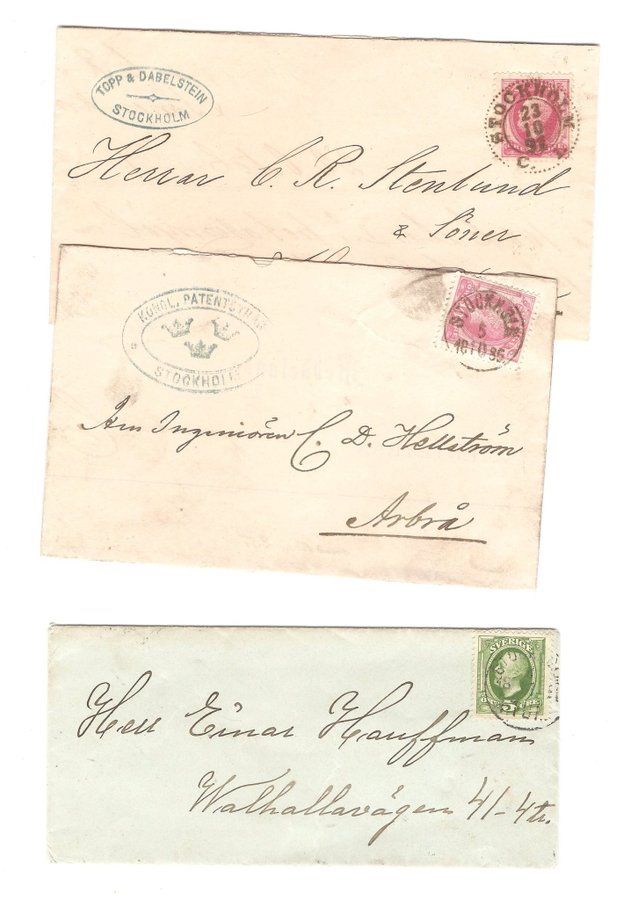 TOPP & DABELSTEIN
STOCKHOLM
STOCKHOLM
23
10
91
C.
Herrar C. R. Stenlund
& Söner
KONGL. PATENTBYRÅN
STOCKHOLM
STOCKHOLM
5
Herr Ingeniören C. D. Hellström
Arbrå
SVERIGE
5 ÖRE
Herr Einar Hauffmann
Walhallavägen 41-4tr.